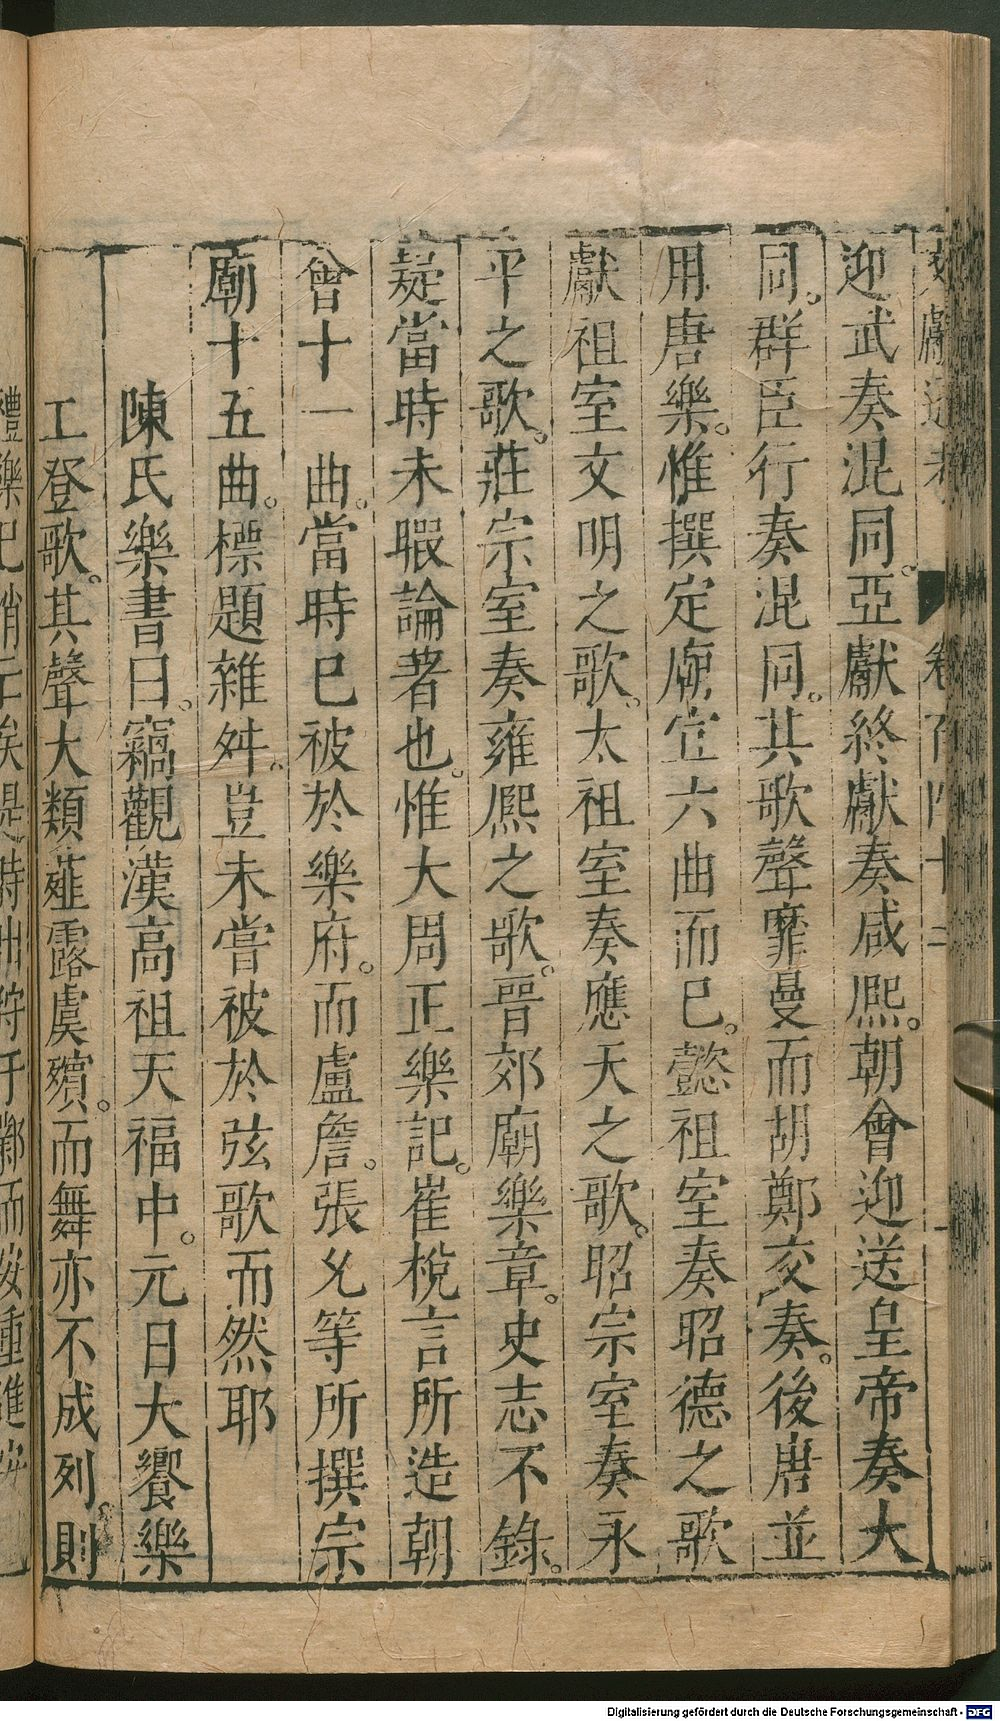 文獻通考 卷百四十二
迎武奏混同。亞獻終獻奏咸熙。朝會迎送皇帝奏大
同。群臣行奏混同。其歌聲靡曼而胡鄭交奏。後唐並
用唐樂。惟撰定廟室六曲而已。懿祖室奏昭德之歌
獻祖室文明之歌。太祖室奏應天之歌。昭宗室奏永
平之歌。莊宗室奏雍熙之歌。晉郊廟樂章。史志不錄。
疑當時未暇論著也。惟大周正樂記。崔梲言所造朝
會十一曲。當時已被於樂府。而盧詹。張允等所撰宗
廟十五曲。標題雜舛。豈未嘗被於弦歌而然耶
陳氏樂書曰。竊觀漢高祖天福中。元日大饗樂
工登歌。其聲大類薤露虞殯。而舞亦不成列。則
Digitalisierung gefördert durch die Deutsche Forschungsgemeinschaft - DFG